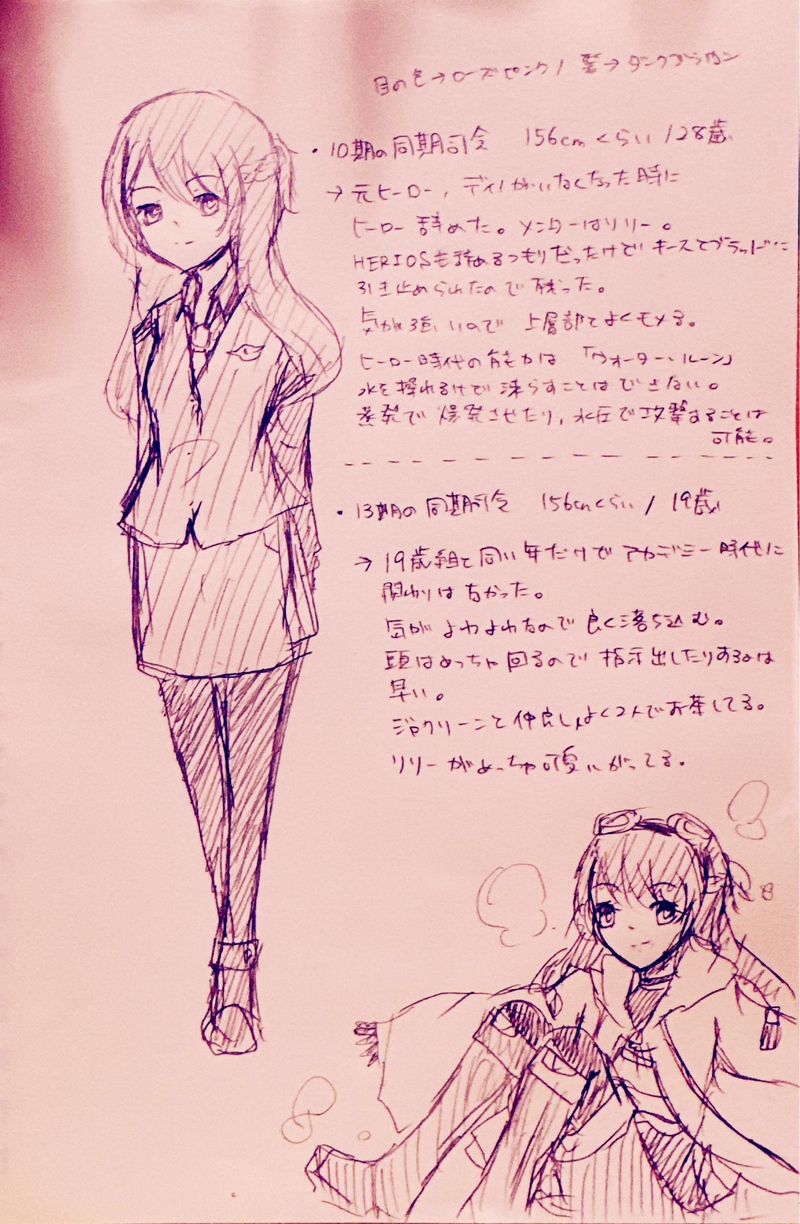 目の色→ローズピンク / 髪→ダークブラウン
・10期の同期司令 156cmくらい / 28歳
→元ヒーロー, ディノがいなくなった時に
ヒーロー辞めた。メンターはリリー。
HERIOSも辞めるつもりだったけどキースとブラッドに
引き止められたので残った。
気が強いので上層部とよくモメる。
ヒーロー時代の能力は「ウォーター・ルーン」
水を操れるけど凍らすことはできない。
蒸発で爆発させたり, 水圧で攻撃することは
可能。
・13期の同期司令 156cmくらい / 19歳
→19歳組と同い年だけどアカデミー時代に
関わりはなかった。
気がよわよわなので良く落ち込む。
頭はめっちゃ回るので指示出したりするのは
早い。
ジャクリーンと仲良し,よく2人でお茶してる。
リリーがめっちゃ可愛いがってる。